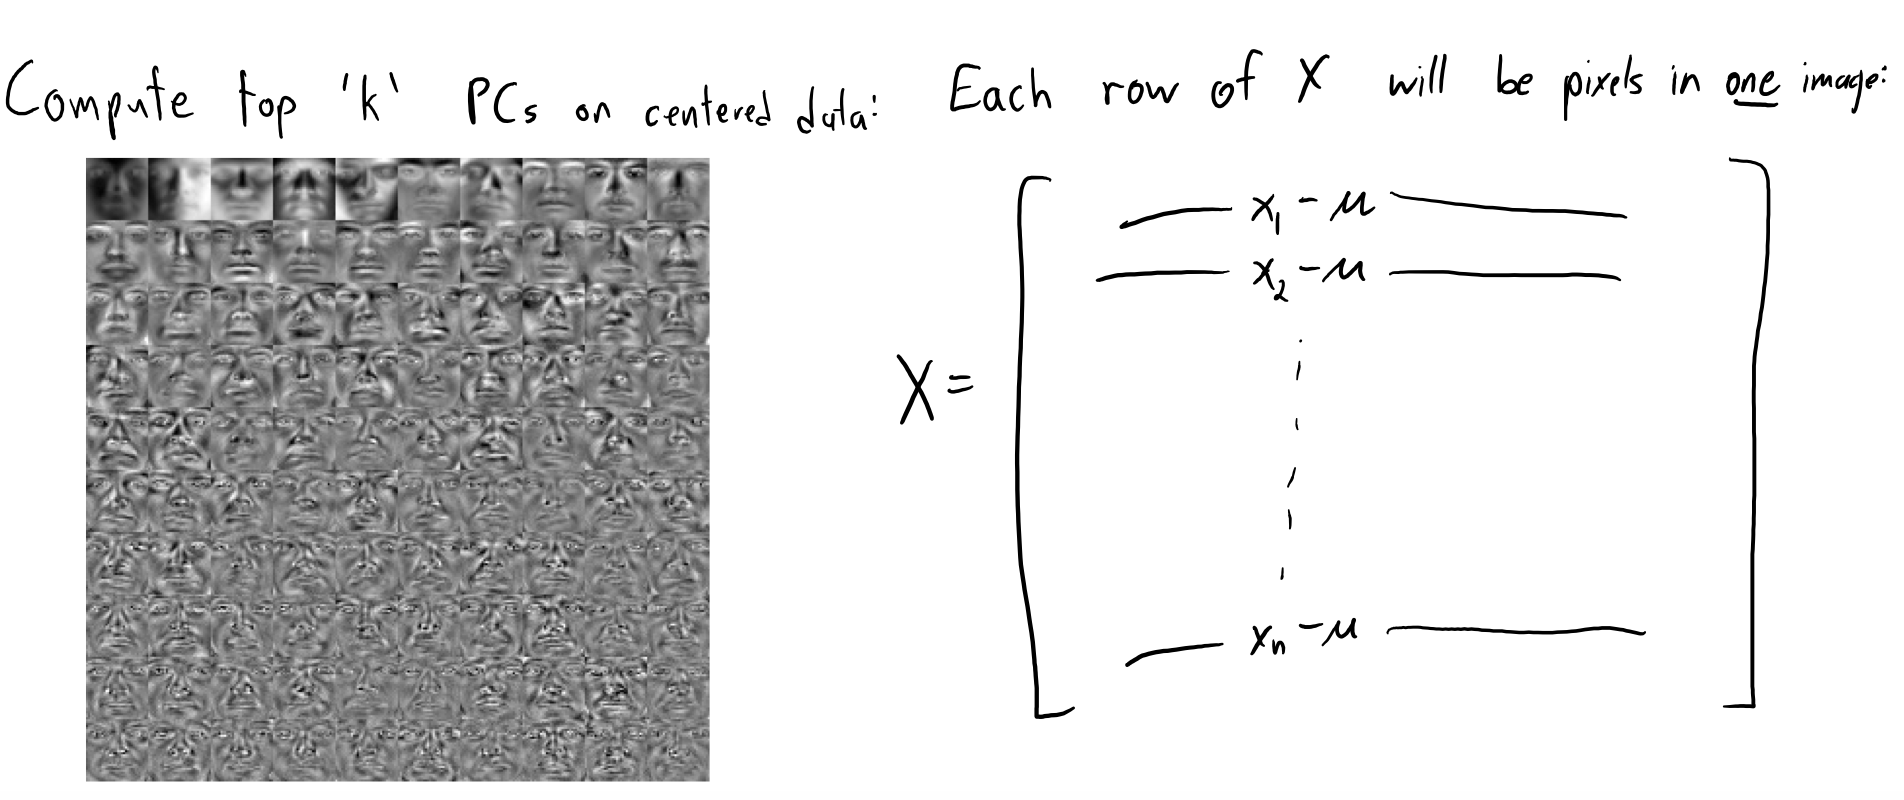 Compute top 'k' PCs on centered data:
Each row of X will be pixels in one image:
x₁ - μ
x₂ - μ
X =
xₙ - μ